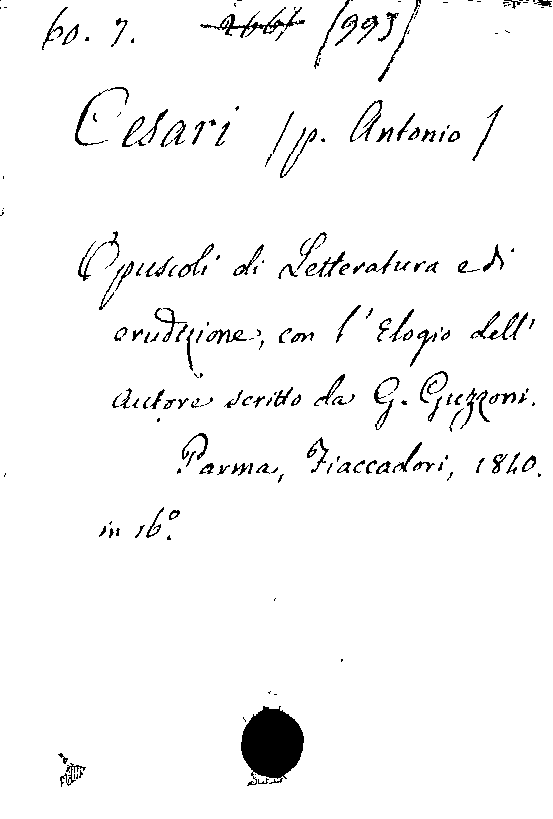 60. 7. (993)
Cesari (p. Antonio)
Opuscoli di Letteratura e di
erudizione, con l'Elogio dell'
Autore scritto da G. Guzzoni.
Parma, Fiaccadori, 1840.
in 16.º